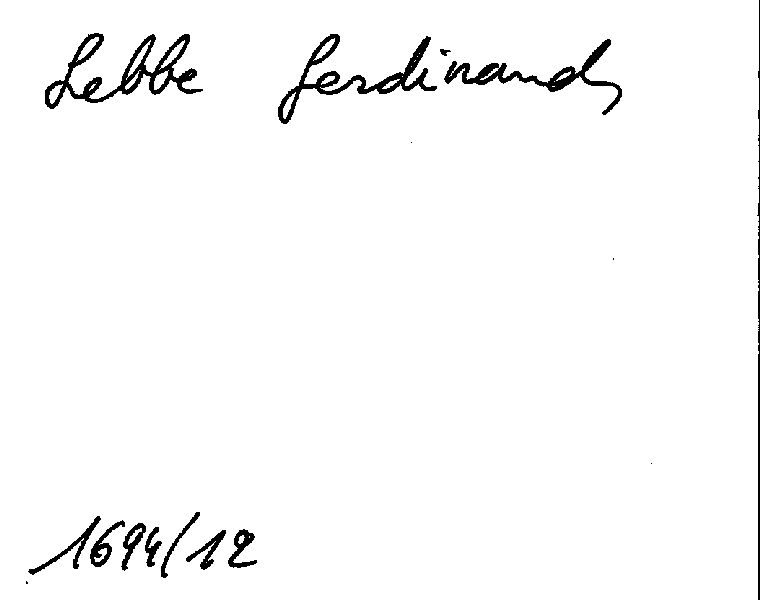 Lebbe Ferdinand
1694/12